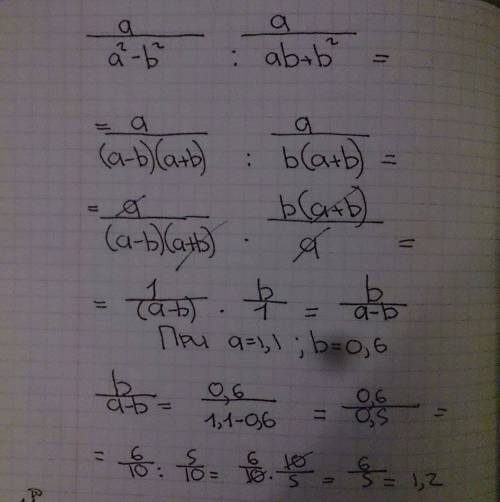 a/(a²-b²) : a/(ab+b²) =
= a/((a-b)(a+b)) : a/(b(a+b)) =
= a/((a-b)(a+b)) · b(a+b)/a =
= 1/(a-b) · b/1 = b/(a-b)
При a=1,1 ; b=0,6
b/(a-b) = 0,6/(1,1-0,6) = 0,6/0,5 =
= 6/10 : 5/10 = 6/10 · 10/5 = 6/5 = 1,2